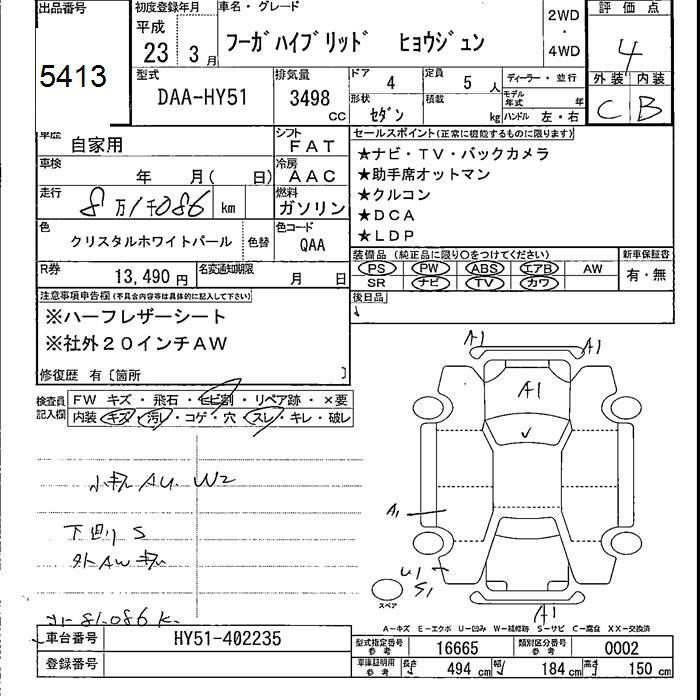 出品番号
5413
初度登録年月
平成
23 3月
車名・グレード
フーガハイブリッド ヒョウジュン
2WD
・
4WD
評価点
4
外装 内装
C B
型式
DAA-HY51
排気量
3498
CC
ドア 4
定員 5 人
ディーラー・並行
形状 セダン
積載 kg
モデル年式 年
ハンドル 左・右
車歴
自家用
シフト
FAT
車検
年 月( 日)
冷房
AAC
走行
8万1千086 km
燃料
ガソリン
色
クリスタルホワイトパール
色替
色コード
QAA
R券
13,490円
名変通知期限
月 日
セールスポイント(正常に機能するものに限ります)
★ナビ・TV・バックカメラ
★助手席オットマン
★クルコン
★DCA
★LDP
装備品 (純正品に限り○をつけてください)
新車保証書
PS PW ABS エアB AW
有・無
SR ナビ TV カワ
後日品
注意事項申告欄(不具合内容等は具体的に記入して下さい)
※ハーフレザーシート
※社外20インチAW
修復歴 有〔箇所 〕
検査員記入欄
FW キズ・飛石・ヒビ割・リペア跡・×要
内装・キズ・汚レ・コゲ・穴・スレ・キレ・破レ
小キズ AU W2
下回り S
外AWキズ
81.086K
A1 A1
A1
A1
U1
S1
A1
スペア
A-キズ E-エクボ U-凹み W-補修跡 S-サビ C-腐食 XX-交換済
車台番号
HY51-402235
登録番号
型式指定番号 参考
16665
類別区分番号 参考
0002
車庫証明用 参考
長さ 494 cm
幅 184 cm
高さ 150 cm